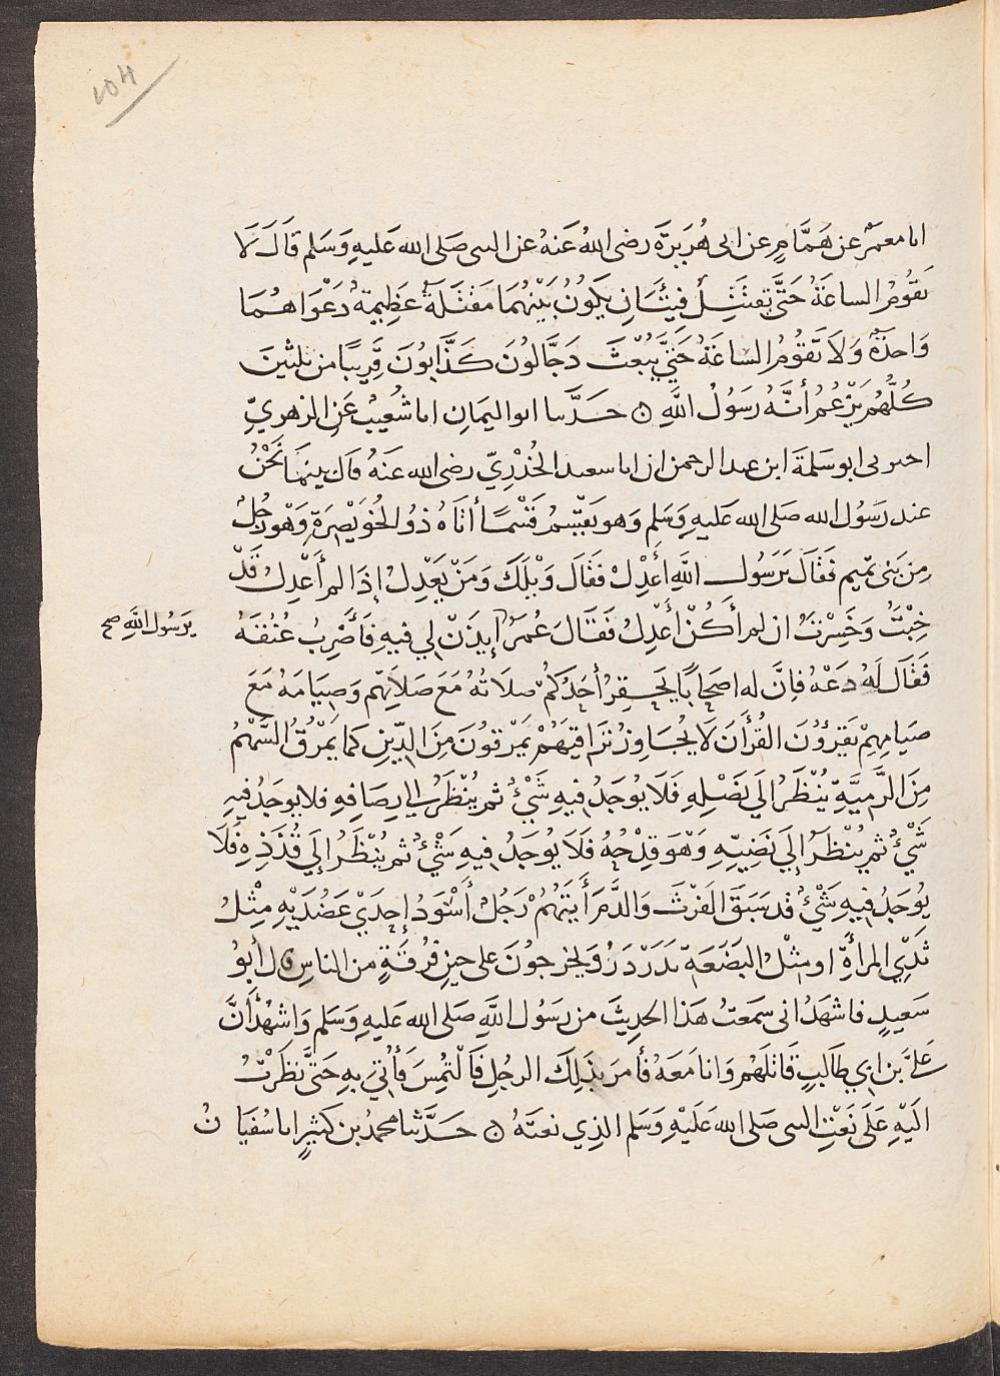 ١٥٤
انا معمر عن هَمَّامٍ عن ابى هُرَيرَةَ رضى اللهُ عَنهُ عن النبى صَلى الله عَليهِ وَسَلم قَالَ لَا
تَقوُمُ الساعَةُ حَتَّى تَقتَتِلَ فِيئَتَانِ يَكوُنُ بَيْنَهُمَا مَقْتَلَةٌ عَظِيمَةٌ دَعْوَاهُمَا
وَاحدَةٌ وَلَا تَقوُمُ الساعَةُ حَتَّي يُبْعَثَ دَجَّالُونَ كَذَّابُونَ قَرِيبًا من ثلثينَ
كُلُّهُم يَزْعُمُ أنَّهُ رَسوُلُ اللَّهِ ۞ حَدَّثنا ابو اليَمَانِ انا شُعَيبٌ عَنِ الزهريِّ
اخبرنى ابو سَلمَةَ ابن عبد الرحمن ان ابا سعيد الخُدْرِيَّ رضى الله عَنَهُ قال بينَمَا نَحْنُ
عند رَسوُل الله صَلى الله عَليهِ وَسَلم وَهو يَقسِّمُ قَسْمًا أتَاهُ ذوُ الخُوَيْصِرَةِ وَهْوَ رَجُلٌ
مِن بَنى تميم فَقَالَ يَرَسوُل اللَّهِ أَعْدِلْ فَقَالَ وَيْلَكَ وَمَنْ يَعْدِلُ إذَا لم أَعْدِلْ قَدْ
خِبْتُ وَخَسِرْتُ ان لم أَكُنْ أَعْدِلُ فَقَالَ عُمَرُ إيذَنْ لي فيهِ فَأضْرِبُ عُنُقَهُ
يَرَسوُل اللَّهِ صح
فَقَالَ لَهُ دَعْهُ فاِنَّ له اصحَابًا يَحْقِرُ أَحَدُكُمْ صَلَاتَهُ مَعَ صَلَاتِهِم وَصِيَامَهُ مَعَ
صَيامِهِمْ يَقرؤُنَ القُرْأنَ لَا يُجَاوِزُ تَرَاقِيَهُمْ يَمْرقوُنَ مِنَ الدِّينِ كما يَمْرُقُ السَّهْمُ
مِنَ الرَّمِيَّةِ يُنْظَرُ إلي نَصْلِهِ فَلَا يُوجَدُ فيهِ شَيْءٌ ثم يُنْظَرُ إلي رِصَافِهِ فلا يوجَدُ فيهِ
شَيْءٌ ثم يُنْظَرُ إلَي نَضِيِّهِ وَهْوَ قِدْحُهُ فَلَا يُوجَدُ فيهِ شَيْءٌ ثم يُنْظَرُ إلَي قُذَذِهِ فَلَا
يُوجَدُ فيهِ شَيْءٌ قد سَبَقَ الفَرْثَ وَالدَّمَ أَيَتُهُمْ رَجُلٌ أَسْوَدُ إحدَيْ عَضُدَيْهِ مِثْلُ
ثَدِْي المرأَةِ او مِثْلُ البَضَعَةِ تَدَرْدَرُ وَيخرجوُنَ على حِينِ فُرْقَةٍ من الناسِ قال أبوُ
سَعيدٍ فاشهَدُ انى سَمِعتُ هَذا الحديثَ من رَسوُل اللَّهِ صَلى الله عَليهِ وَسَلم وَاشهَدُ أَنَّ
عَليَّ بن ابي طَالبٍ قَاتَلَهُم وَانا مَعَهُ فأمَرَ بذَلِكَ الرجُلِ فَالْتُمِسَ فَأُتِيَ بهِ حَتَّى نَظَرْتُ
اليْهِ عَلَى نَعْتِ النبى صَلى الله عَلَيْهِ وَسَلم الذِي نعتَهُ ۞ حَدَّثنا محمدُ بن كثيرٍ انا سُفيَانُ